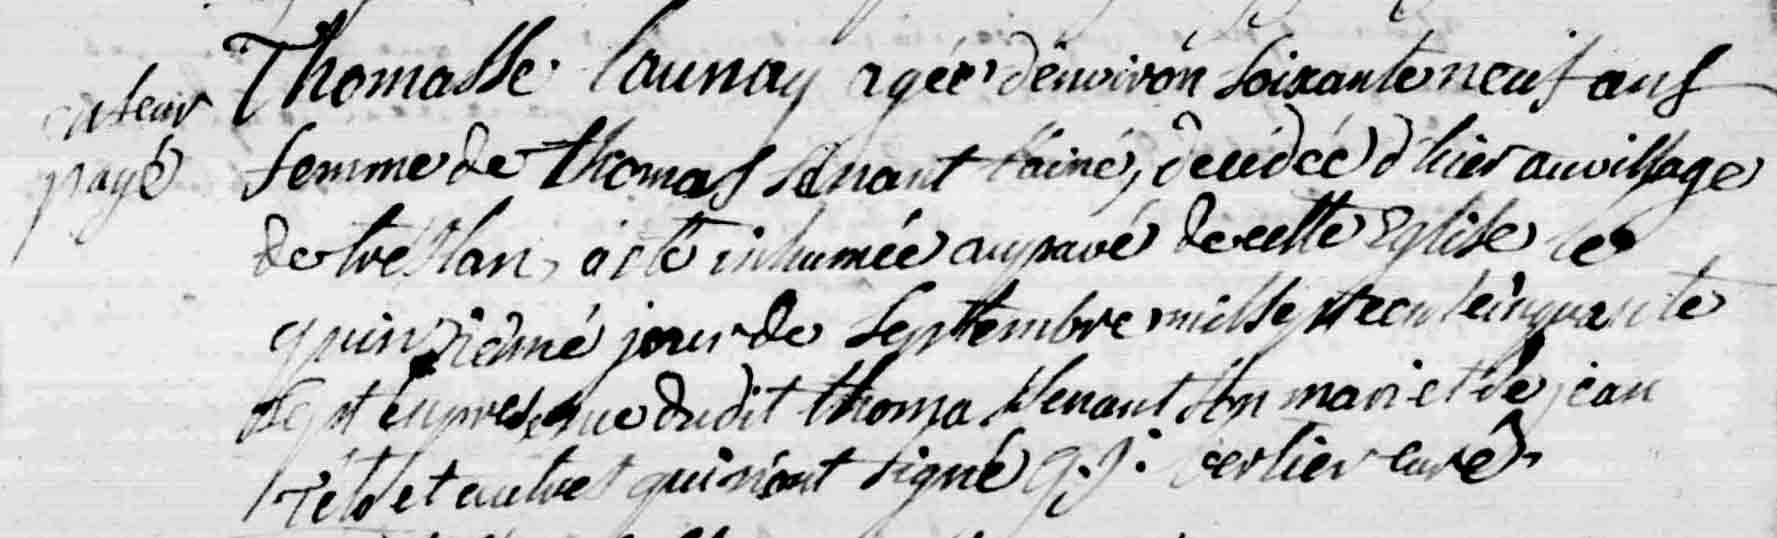 Thomasse Launay agée d'environ soixante neuf ans
payé femme de thomas Senant l'ainé, decédée d'hier au village
de trestlan, a été inhumée au pavé de cette Eglise le
quinzième jour de septembre mil sept cent cinquante
sept en presence dudit thoma Senant son mari et de jean
et autres qui n'ont signé G. J. curé